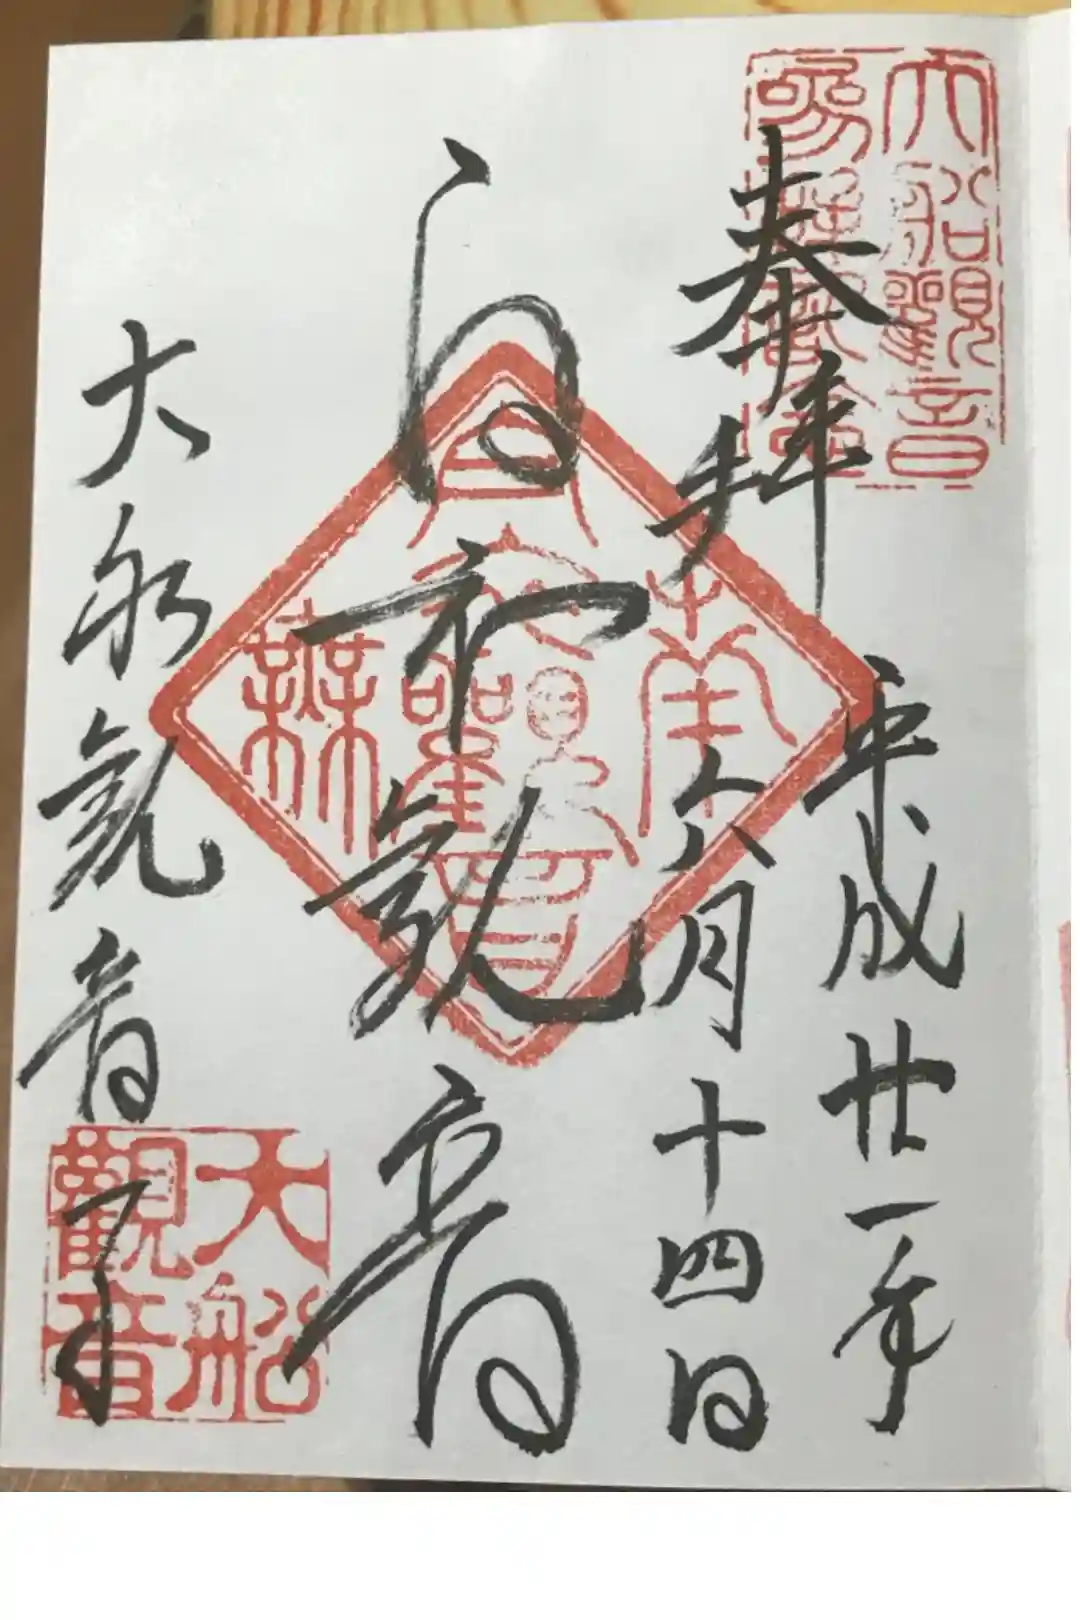 大船觀音
奉拝
平成廿一年
六月十四日
白衣観音
大船観音寺
大船
觀音